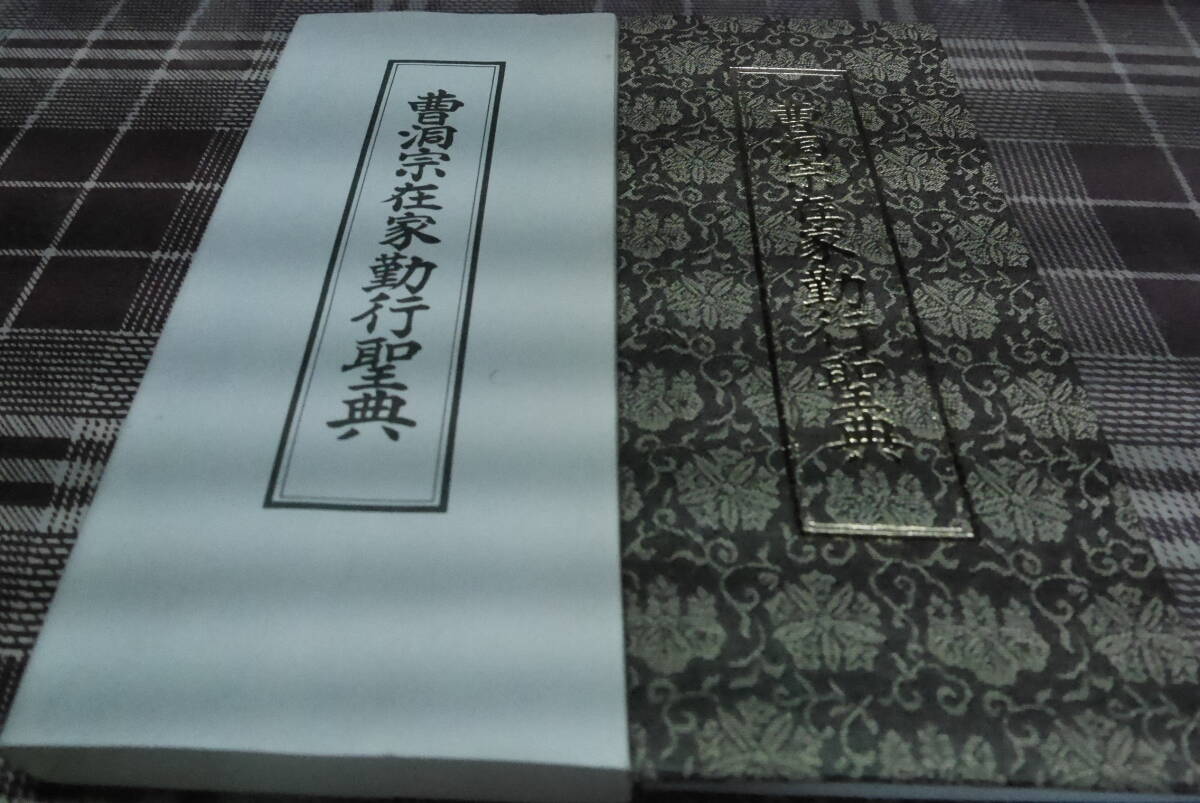 曹洞宗在家勤行聖典
曹洞宗在家勤行聖典